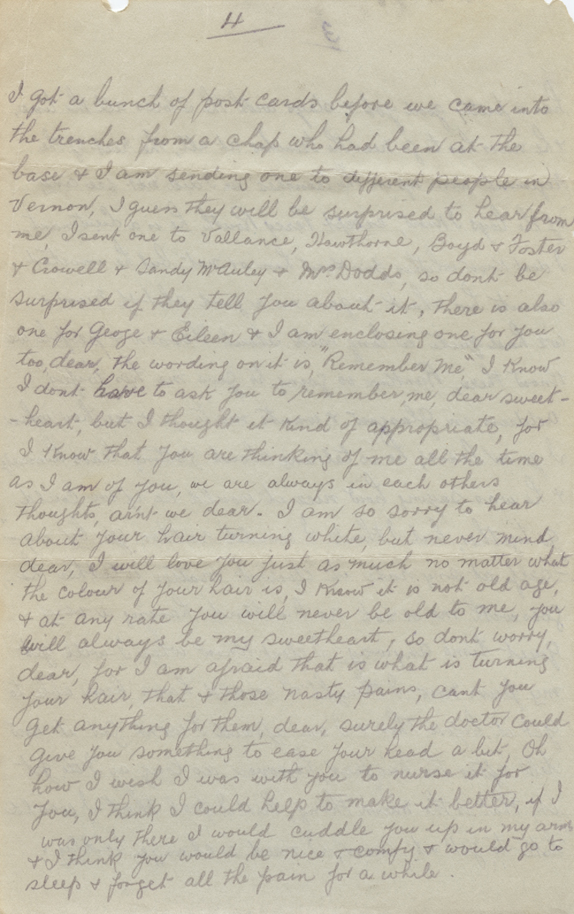 4
3
I got a bunch of post cards before we came into
the trenches from a chap who had been at the
base & I am sending one to different people in
Vernon, I guess they will be surprised to hear from
me, I sent one to Vallance, Hawthorne, Boyd & Foster
& Crowell & Sandy McAuley & Mrs Dodds, so dont be
surprised if they tell you about it, there is also
one for George & Eileen & I am enclosing one for you
too, dear, the wording on it is, "Remember Me" I know
I dont have to ask you to, remember, me, dear sweet-
-heart, but I thought it kind of appropriate, for
I know that you are thinking of me all the time
as I am of you, we are always in each others
thoughts, aint we dear. I am so sorry to hear
about your hair turning white, but never mind
dear, I will love you just as much no matter what
the colour of your hair is, I know it is not old age,
& at any rate you will never be old to me, you
will always be my sweetheart, so dont worry,
dear, for I am afraid that is what is turning
your hair, that & those nasty pains, cant you
get anything for them, dear, surely the doctor could
give you something to ease your head a bit, Oh
how I wish I was with you to nurse it for
you, I think I could help to make it better, if I
was only there I would cuddle you up in my arms
& I think you would be nice & comfy & would go to
sleep & forget all the pain for a while.